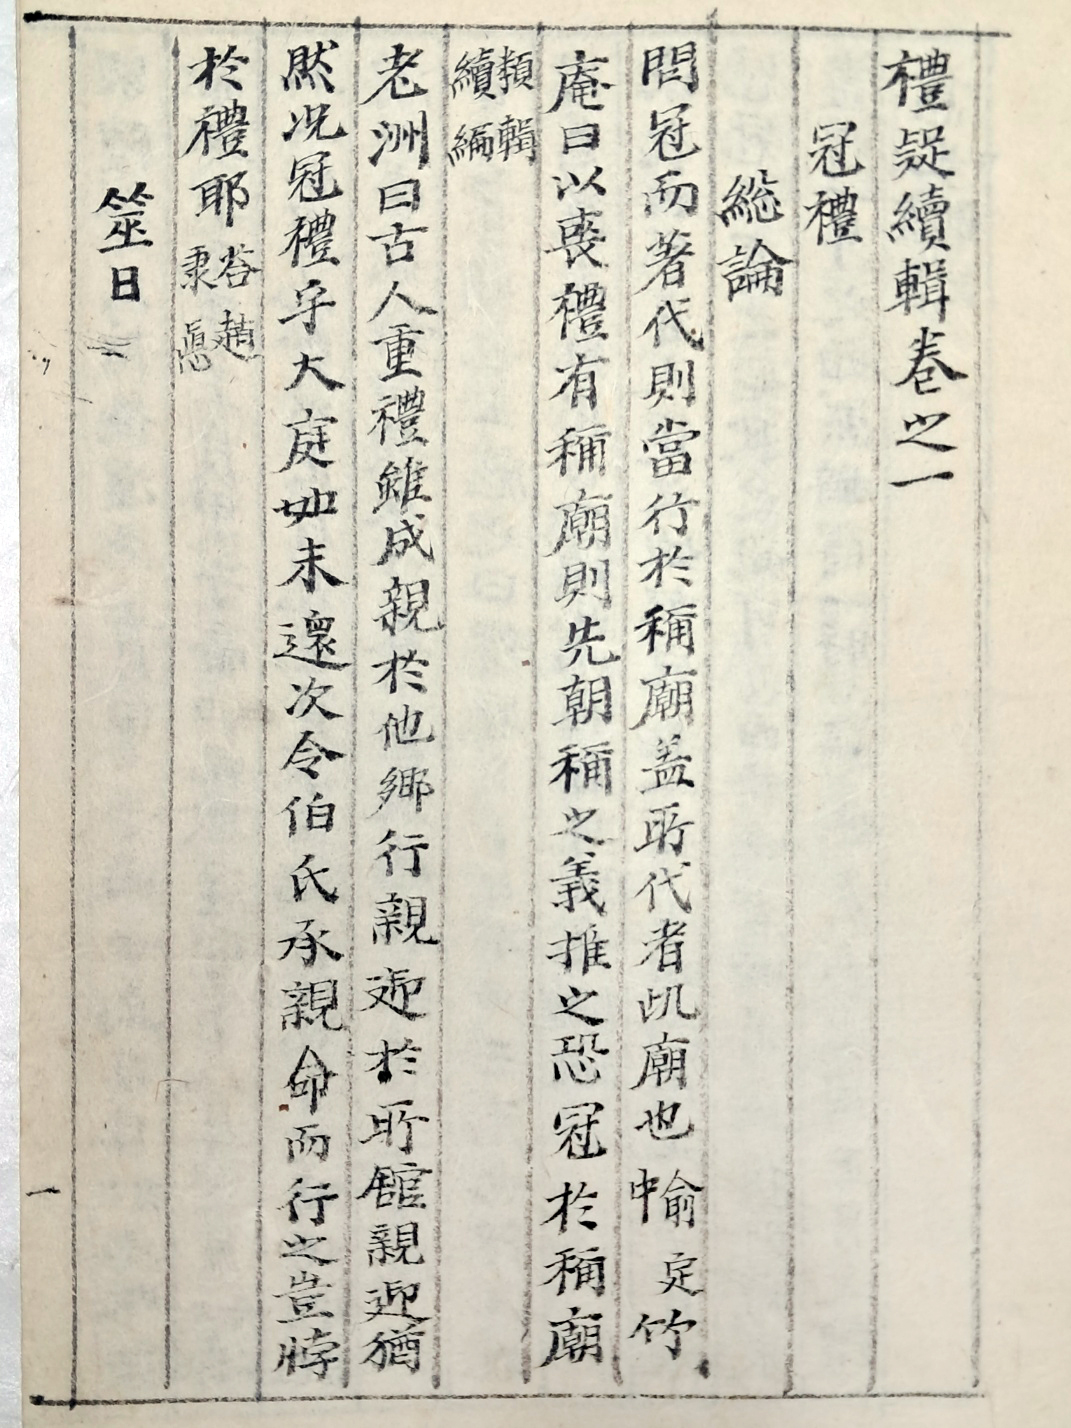 禮疑續輯卷之一
冠禮
総論
問冠而著代則當行於稱廟盖所代者此廟也 愈中㝎 竹
庵曰以喪禮有稱廟則先朝稱之義推之恐冠於稱廟
類輯
續編
老洲曰古人重禮雖成親於他鄉行親迎於所館親迎猶
然况冠禮乎大庭如未還次令伯氏承親命而行之豈悖
於禮耶 答趙
秉悳
筮日
一